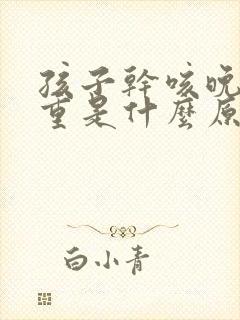 孩子幹咳晚
重是什麼原
白小青